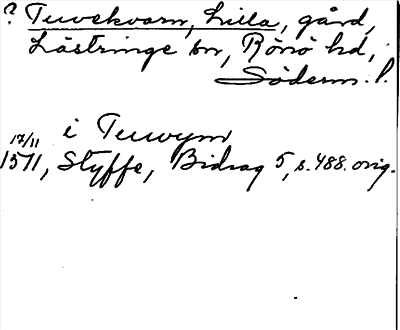 ? Tuvekvarn, Lilla, gård,
Lästringe sn, Rönö hd,
Söderm. l.
i Tuwym
17/11
1511, Styffe, Bidrag 5, s. 488. orig.